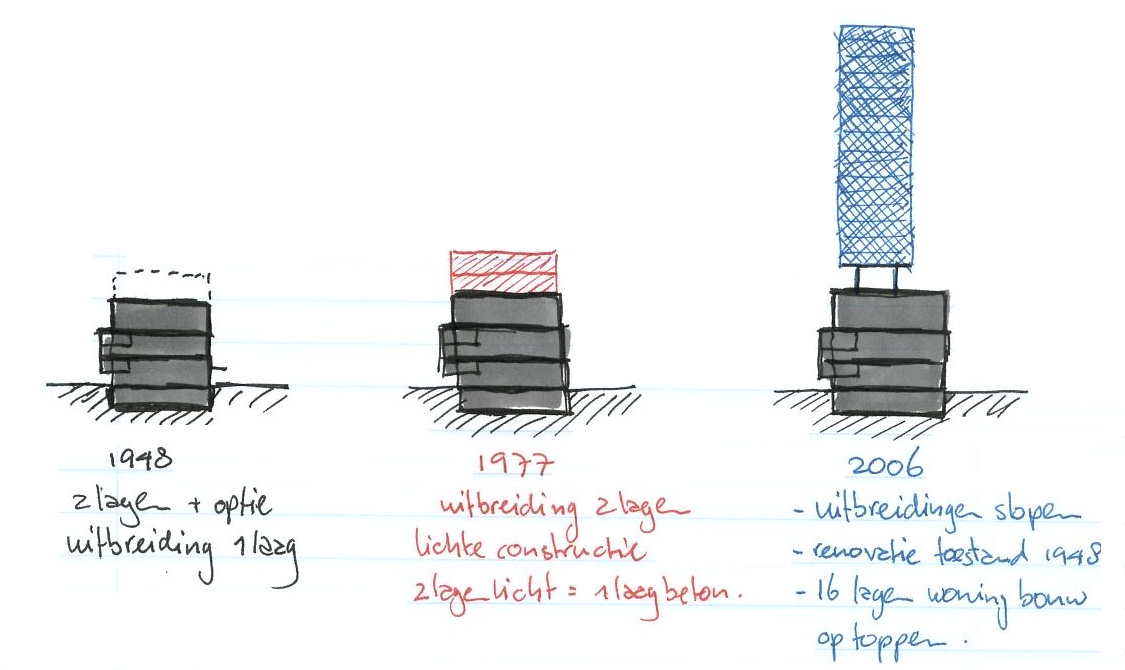 1948
2 lagen + optie
uitbreiding 1 laag
1977
uitbreiding 2 lagen
lichte constructie
2 lagen licht = 1 laag beton.
2006
- uitbreidingen slopen
- renovatie toestand 1948
- 16 lagen woning bouw
optoppen.